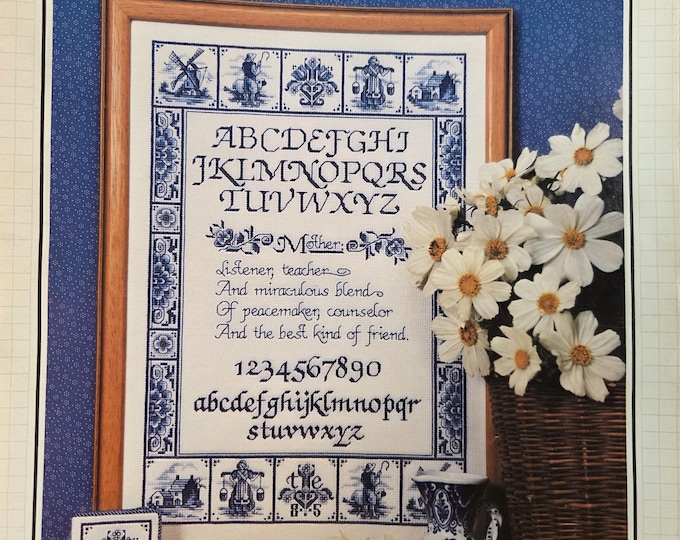 ABCDEFGHI
JKLMNOPQRS
TUVWXYZ
Mother:
Listener, teacher
And miraculous blend
Of peacemaker, counselor
And the best kind of friend.
1234567890
abcdefghijklmnopqr
stuvwxyz
the
85